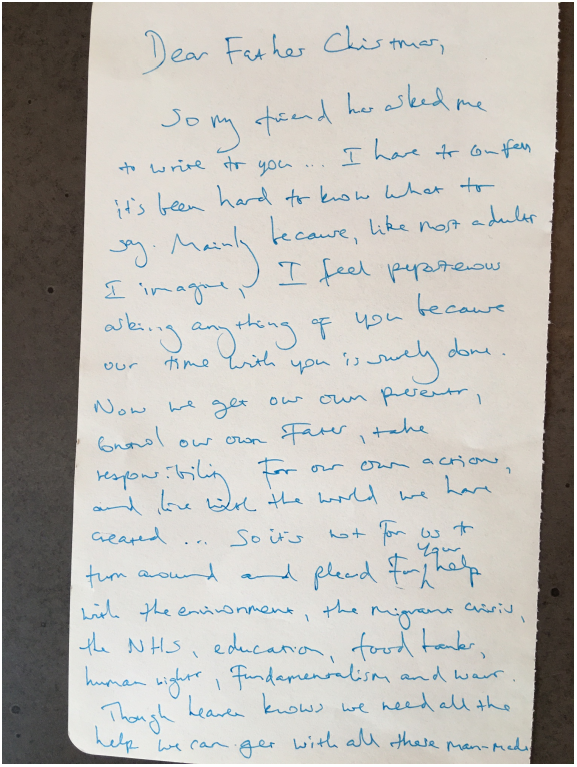 Dear Father Christmas,
So my friend has asked me
to write to you... I have to confess
it's been hard to know what to
say. Mainly because, like most adults
I imagine, I feel preposterous
asking anything of you because
our time with you is surely done.
Now we get our own presents,
control our own Fates, take
responsibility For our own actions,
and live with the world we have
created... So it's not For us to
turn around and plead For your help
with the environment, the migrant crisis,
the NHS, education, food banks,
human rights, Fundamentalism and war.
Though heaven knows we need all the
help we can get with all these man-made